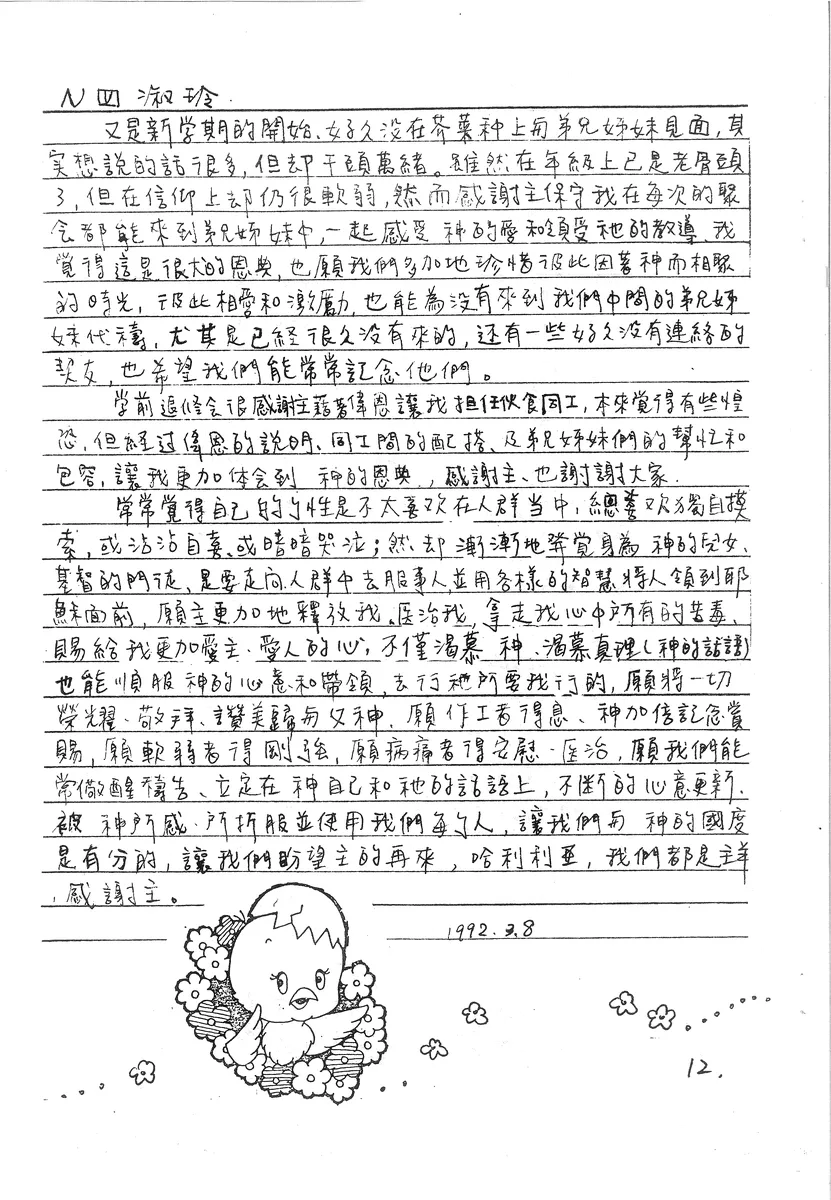 N四 淑玲
又是新学期的開始、好久没在芥菜种上与弟兄姊妹見面,其
实想說的話很多,但却千頭萬緒。雖然在年級上已是老骨頭
了,但在信仰上却仍很軟弱,然而感謝主保守我在每次的聚
会都能來到弟兄姊妹中,一起感受 神的愛和領受祂的教導、我
覺得這是很大的恩典,也願我們多加地珍惜彼此因著神而相聚
的時光,彼此相愛和激勵,也能為没有來到我們中間的弟兄姊
妹代禱,尤其是已経很久没有來的,还有一些好久没有連絡的
契友,也希望我們能常常記念他們。
学前退修会很感謝主藉著偉恩讓我担任伙食同工,本來覺得有些惶
恐,但経过偉恩的說明、同工間的配搭、及弟兄姊妹們的幫忙和
包容,讓我更加体会到 神的恩典,感謝主、也謝謝大家.
常常覺得自己的个性是不太喜欢在人群当中,總喜欢獨自摸
索,或沾沾自喜、或暗暗哭泣;然却漸漸地發覚身為 神的兒女、
基督的門徒,是要走向人群中去服事人,並用各様的智慧將人領到耶
穌面前,願主更加地釋放我、医治我,拿走我心中所有的苦毒、
賜給我更加愛主、愛人的心,不僅渴慕 神、渴慕真理(神的話語)
也能順服 神的心意和帶領,去行祂所要我行的,願將一切
榮光耀、敬拜、讚美歸与父神、願作工者得息、神加倍記念賞
賜,願軟弱者得剛強,願病痛者得安慰、医治,願我們能
常儆醒禱告、立定在 神自己和祂的話語上,不断的心意更新、
被 神所感、所折服並使用我們每个人,讓我們与 神的國度
是有分的,讓我們盼望主的再來,哈利利亜,我們都是主羊
,感謝主。
1992.3.8
12.